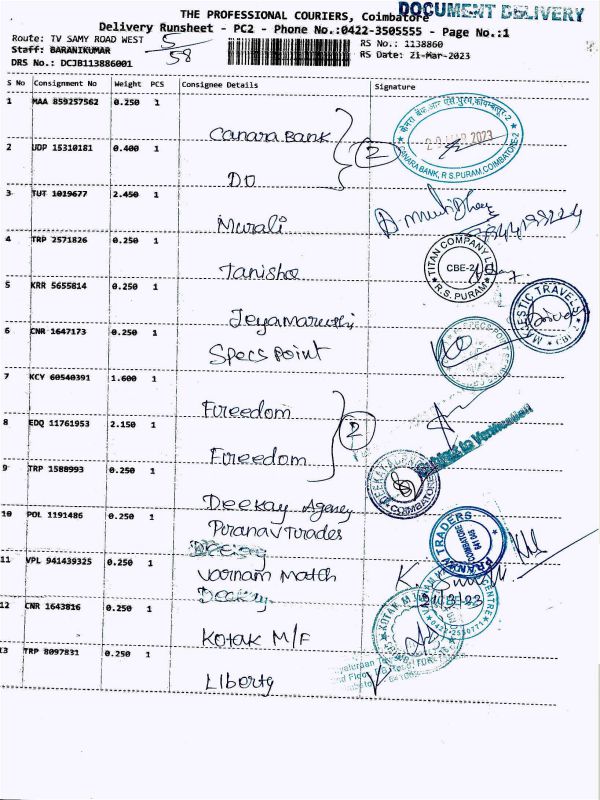 DOCUMENT DELIVERY
THE PROFESSIONAL COURIERS, Coimbatore
Delivery Runsheet - PC2 - Phone No.:0422-3505555 - Page No.:1
Route: TV SAMY ROAD WEST
5/58
RS No.: 1138860
Staff: BARANIKUMAR
RS Date: 21-Mar-2023
DRS No.: DCJB113886001
S No Consignment No Weight PCS Consignee Details Signature
1 MAA 859257562 0.250 1
Canara Bank
2
2023
CANARA BANK, R S PURAM, COIMBATORE-2
2 UDP 15310181 0.400 1
DO
3 TUT 1019677 2.450 1
Murali
4 TRP 2571826 0.250 1
Tanishq
TITAN COMPANY LTD
CBE-2
R.S. PURAM
5 KRR 5655814 0.250 1
Jeyamaruthi
MAJESTIC TRAVELS
6 CNR 1647173 0.250 1
Specs Point
7 KCY 60540391 1.600 1
Freedom
2
Subject to Verification
8 EDQ 11761953 2.150 1
Freedom
9 TRP 1588993 0.250 1
Deekay Agency
COIMBATORE
10 POL 1191486 0.250 1
Piranav Trades
PRANAV TRADERS
COIMBATORE
11 VPL 941439325 0.250 1
Varnam Match
21/3/23
12 CNR 1643816 0.250 1
Kotak M/F
13 TRP 8097831 0.250 1
Liberty